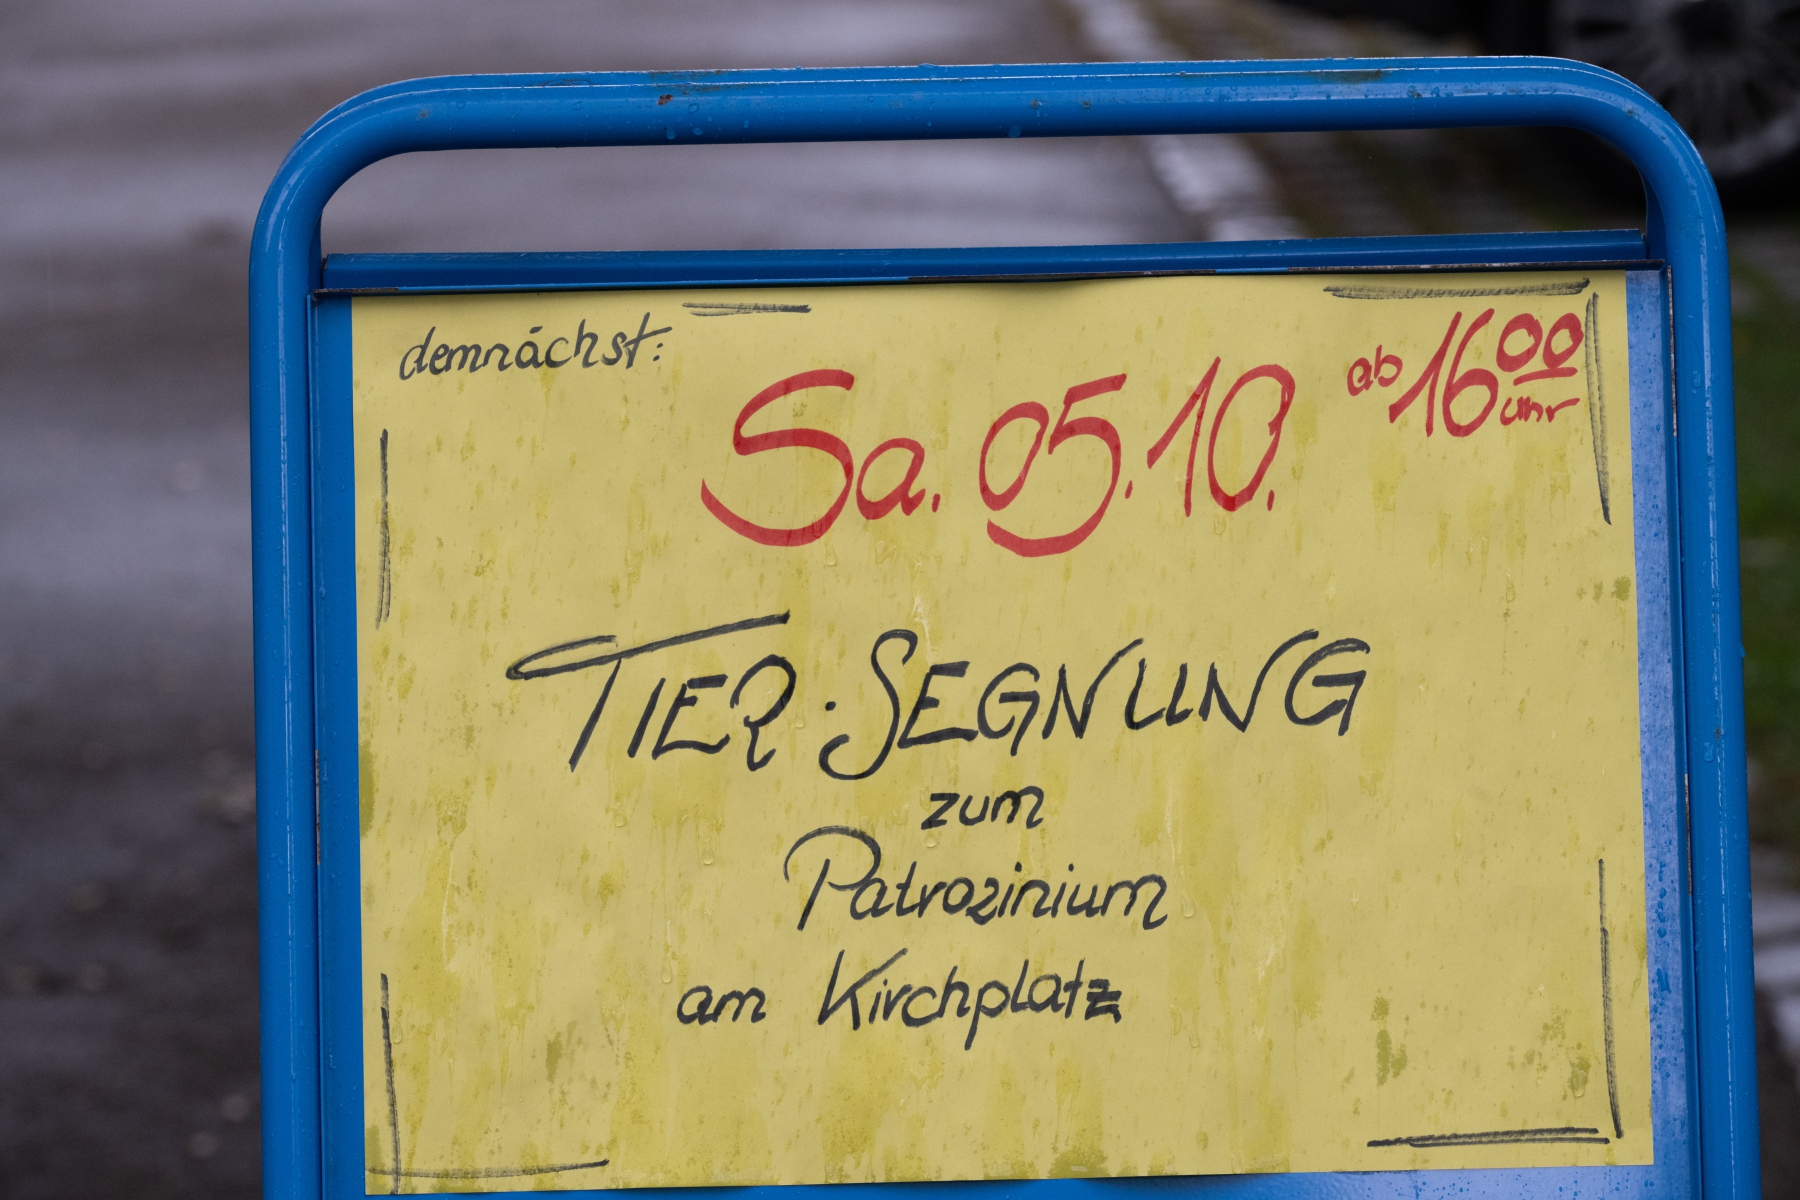 demnächst:
Sa. 05.10. ab 16⁰⁰ Uhr
TIER-SEGNUNG
zum
Patrozinium
am Kirchplatz